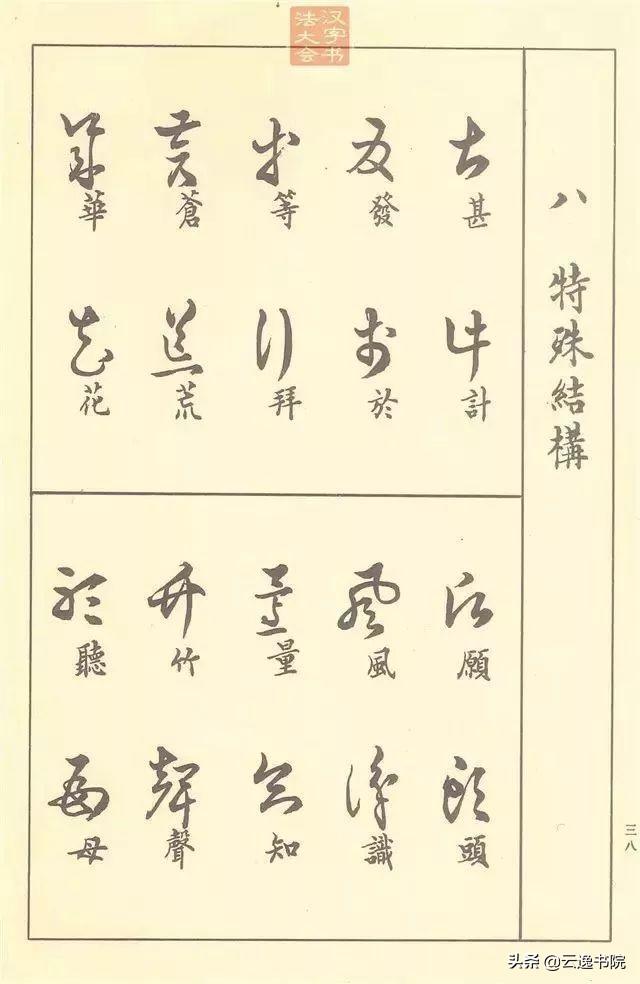 汉字书
法大会
八 特殊結構
甚
計
發
於
等
拜
蒼
荒
華
花
願
頭
風
識
量
知
竹
聲
聽
母
三八
头条 @云逸书院